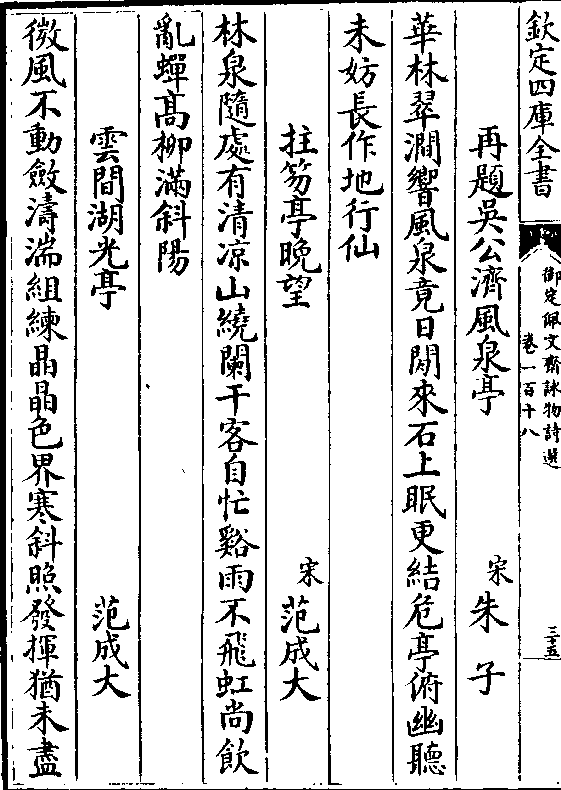 欽定四庫全書
御定佩文齋詠物詩選
卷一百十八
三十五
再題吳公濟風泉亭 宋 朱子
華林翠澗響風泉竟日閒來石上眠更結危亭俯幽聽
未妨長作地行仙
拄笏亭晚望 宋 范成大
林泉隨處有清凉山繞闌干客自忙谿雨不飛虹尚飲
亂蟬高栁滿斜陽
雲間湖光亭 范成大
微風不動斂濤湍組練晶晶色界寒斜照發揮猶未盡